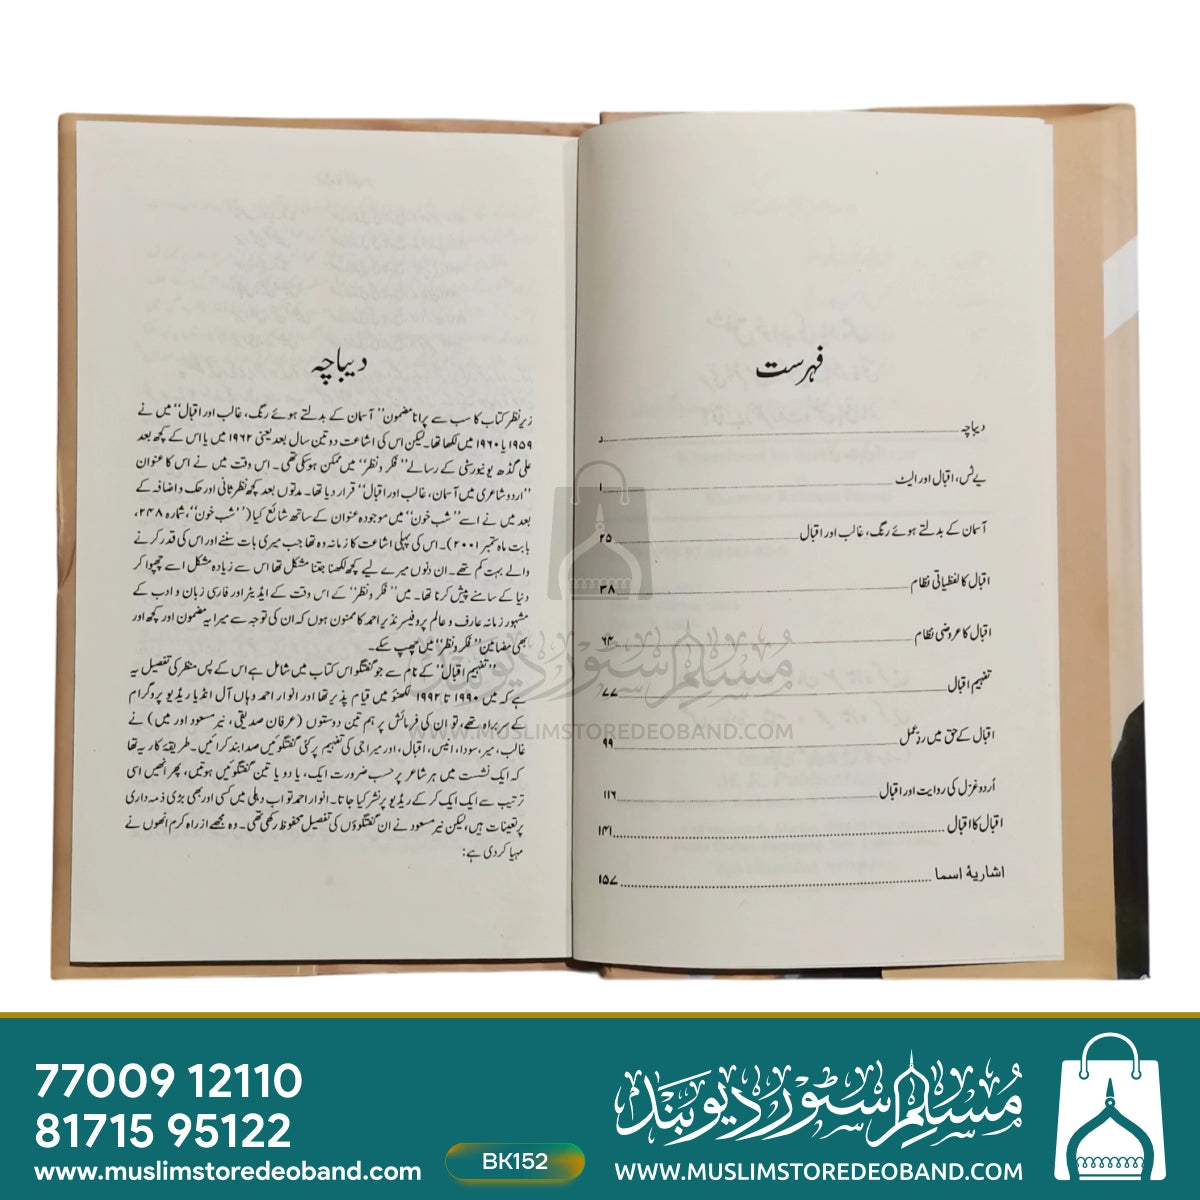 فہرست
دیباچہ ـــــ د
یے ٹس، اقبال اور الیٹ ـــــ ۱
آسمان کے بدلتے ہوئے رنگ، غالب اور اقبال ـــــ ۲۵
اقبال کا لفظیاتی نظام ـــــ ۳۸
اقبال کا عروضی نظام ـــــ ۶۳
تفہیم اقبال ـــــ ۷۷
اقبال کے حق میں ردِ عمل ـــــ ۹۹
اُردو غزل کی روایت اور اقبال ـــــ ۱۱۶
اقبال کا اقبال ..... ۱۴۱
اشاریۂ اسما ..... ۱۵۷
دیباچہ
زیر نظر کتاب کا سب سے پرانا مضمون ’’آسمان کے بدلتے ہوئے رنگ، غالب اور اقبال‘‘ میں نے
۱۹۵۹ یا ۱۹۶۰ میں لکھا تھا۔ لیکن اس کی اشاعت دو تین سال بعد یعنی ۱۹۶۲ میں یا اس کے کچھ بعد
علی گڈھ یونیورسٹی کے رسالے ’’فکر و نظر‘‘ میں ممکن ہوسکی تھی۔ اس وقت میں نے اس کا عنوان
’’اردو شاعری میں آسمان، غالب اور اقبال‘‘ قرار دیا تھا۔ مدتوں بعد کچھ نظر ثانی اور حک و اضافہ کے
بعد میں نے اسے ’’شب خون‘‘ میں موجودہ عنوان کے ساتھ شائع کیا (’’شب خون‘‘، شمارہ ۲۴۸،
بابت ماہ ستمبر ۲۰۰۱)۔ اس کی پہلی اشاعت کا زمانہ وہ تھا جب میری بات سننے اور اس کی قدر کرنے
والے بہت کم تھے۔ ان دنوں میرے لیے کچھ لکھنا جتنا مشکل تھا اس سے زیادہ مشکل اسے چھپوا کر
دنیا کے سامنے پیش کرنا تھا۔ میں ’’فکر و نظر‘‘ کے اس وقت کے ایڈیٹر اور فارسی زبان و ادب کے
مشہور زمانہ عارف و عالم پروفیسر نذیر احمد کا ممنون ہوں کہ ان کی توجہ سے میرا یہ مضمون اور کچھ اور
بھی مضامین ’’فکر و نظر‘‘ میں چھپ سکے۔
’’تفہیم اقبال‘‘ کے نام سے جو گفتگو اس کتاب میں شامل ہے اس کے پس منظر کی تفصیل یہ
ہے کہ میں ۱۹۹۰ تا ۱۹۹۲ لکھنؤ میں قیام پذیر تھا اور انوار احمد وہاں آل انڈیا ریڈیو پروگرام
کے سربراہ تھے، تو ان کی فرمائش پر ہم تین دوستوں (عرفان صدیقی، نیر مسعود اور میں) نے
غالب، میر، سودا، انیس، اقبال، اور میراجی کی تفہیم پر کئی گفتگوئیں صدا بند کرائیں۔ طریقۂ کار یہ تھا
کہ ایک نشست میں ہر شاعر پر حسب ضرورت ایک، یا دو یا تین گفتگوئیں ہوتیں، پھر انھیں اسی
ترتیب سے ایک ایک کرکے ریڈیو پر نشر کیا جاتا۔ انوار احمد تو اب دہلی میں کسی اور بھی بڑی ذمہ داری
پر تعینات ہیں، لیکن نیر مسعود نے ان گفتگوؤں کی تفصیل محفوظ رکھی تھی۔ وہ مجھے از راہ کرم انھوں نے
مہیا کردی ہے:
مسلم سٹور دیوبند
WWW.MUSLIMSTOREDEOBAND.COM
77009 12110
81715 95122
www.muslimstoredeoband.com
BK152
مسلم سٹور دیوبند
WWW.MUSLIMSTOREDEOBAND.COM